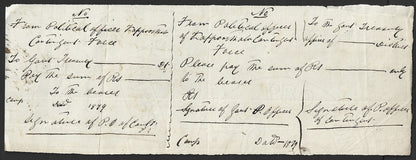 No
From Political officer
Contingent Force
To Govt Treasury
Pay the sum of Rs
to the bearer
Camp
1879
Signature of P. O of Contgt
No
From Political officer
Contingent
Force
Please pay the sum of Rs
to the bearer
Rs
Signature of Govt P. officer
Camp
Dated 1879
To the Govt Treasury
officer of District
only
Signature of P. officer
of Contingent